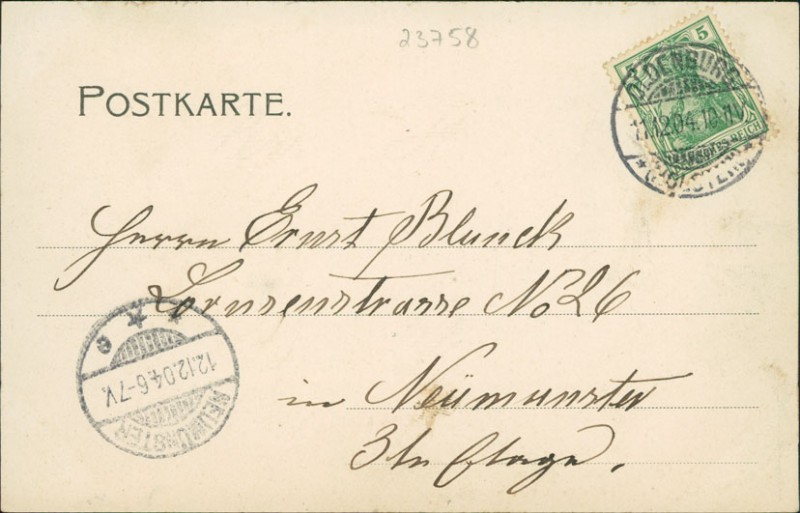 23758
POSTKARTE.
5
OLDENBURG
11.12.04.10-11V.
* (HOLSTEIN) *
DEUTSCHES REICH
Herrn Ernst Blunck
Lornsenstrasse No 26
in Neümünster
3te Etage.
e * *
12.12.04.6-7V.
NEUMÜNSTER